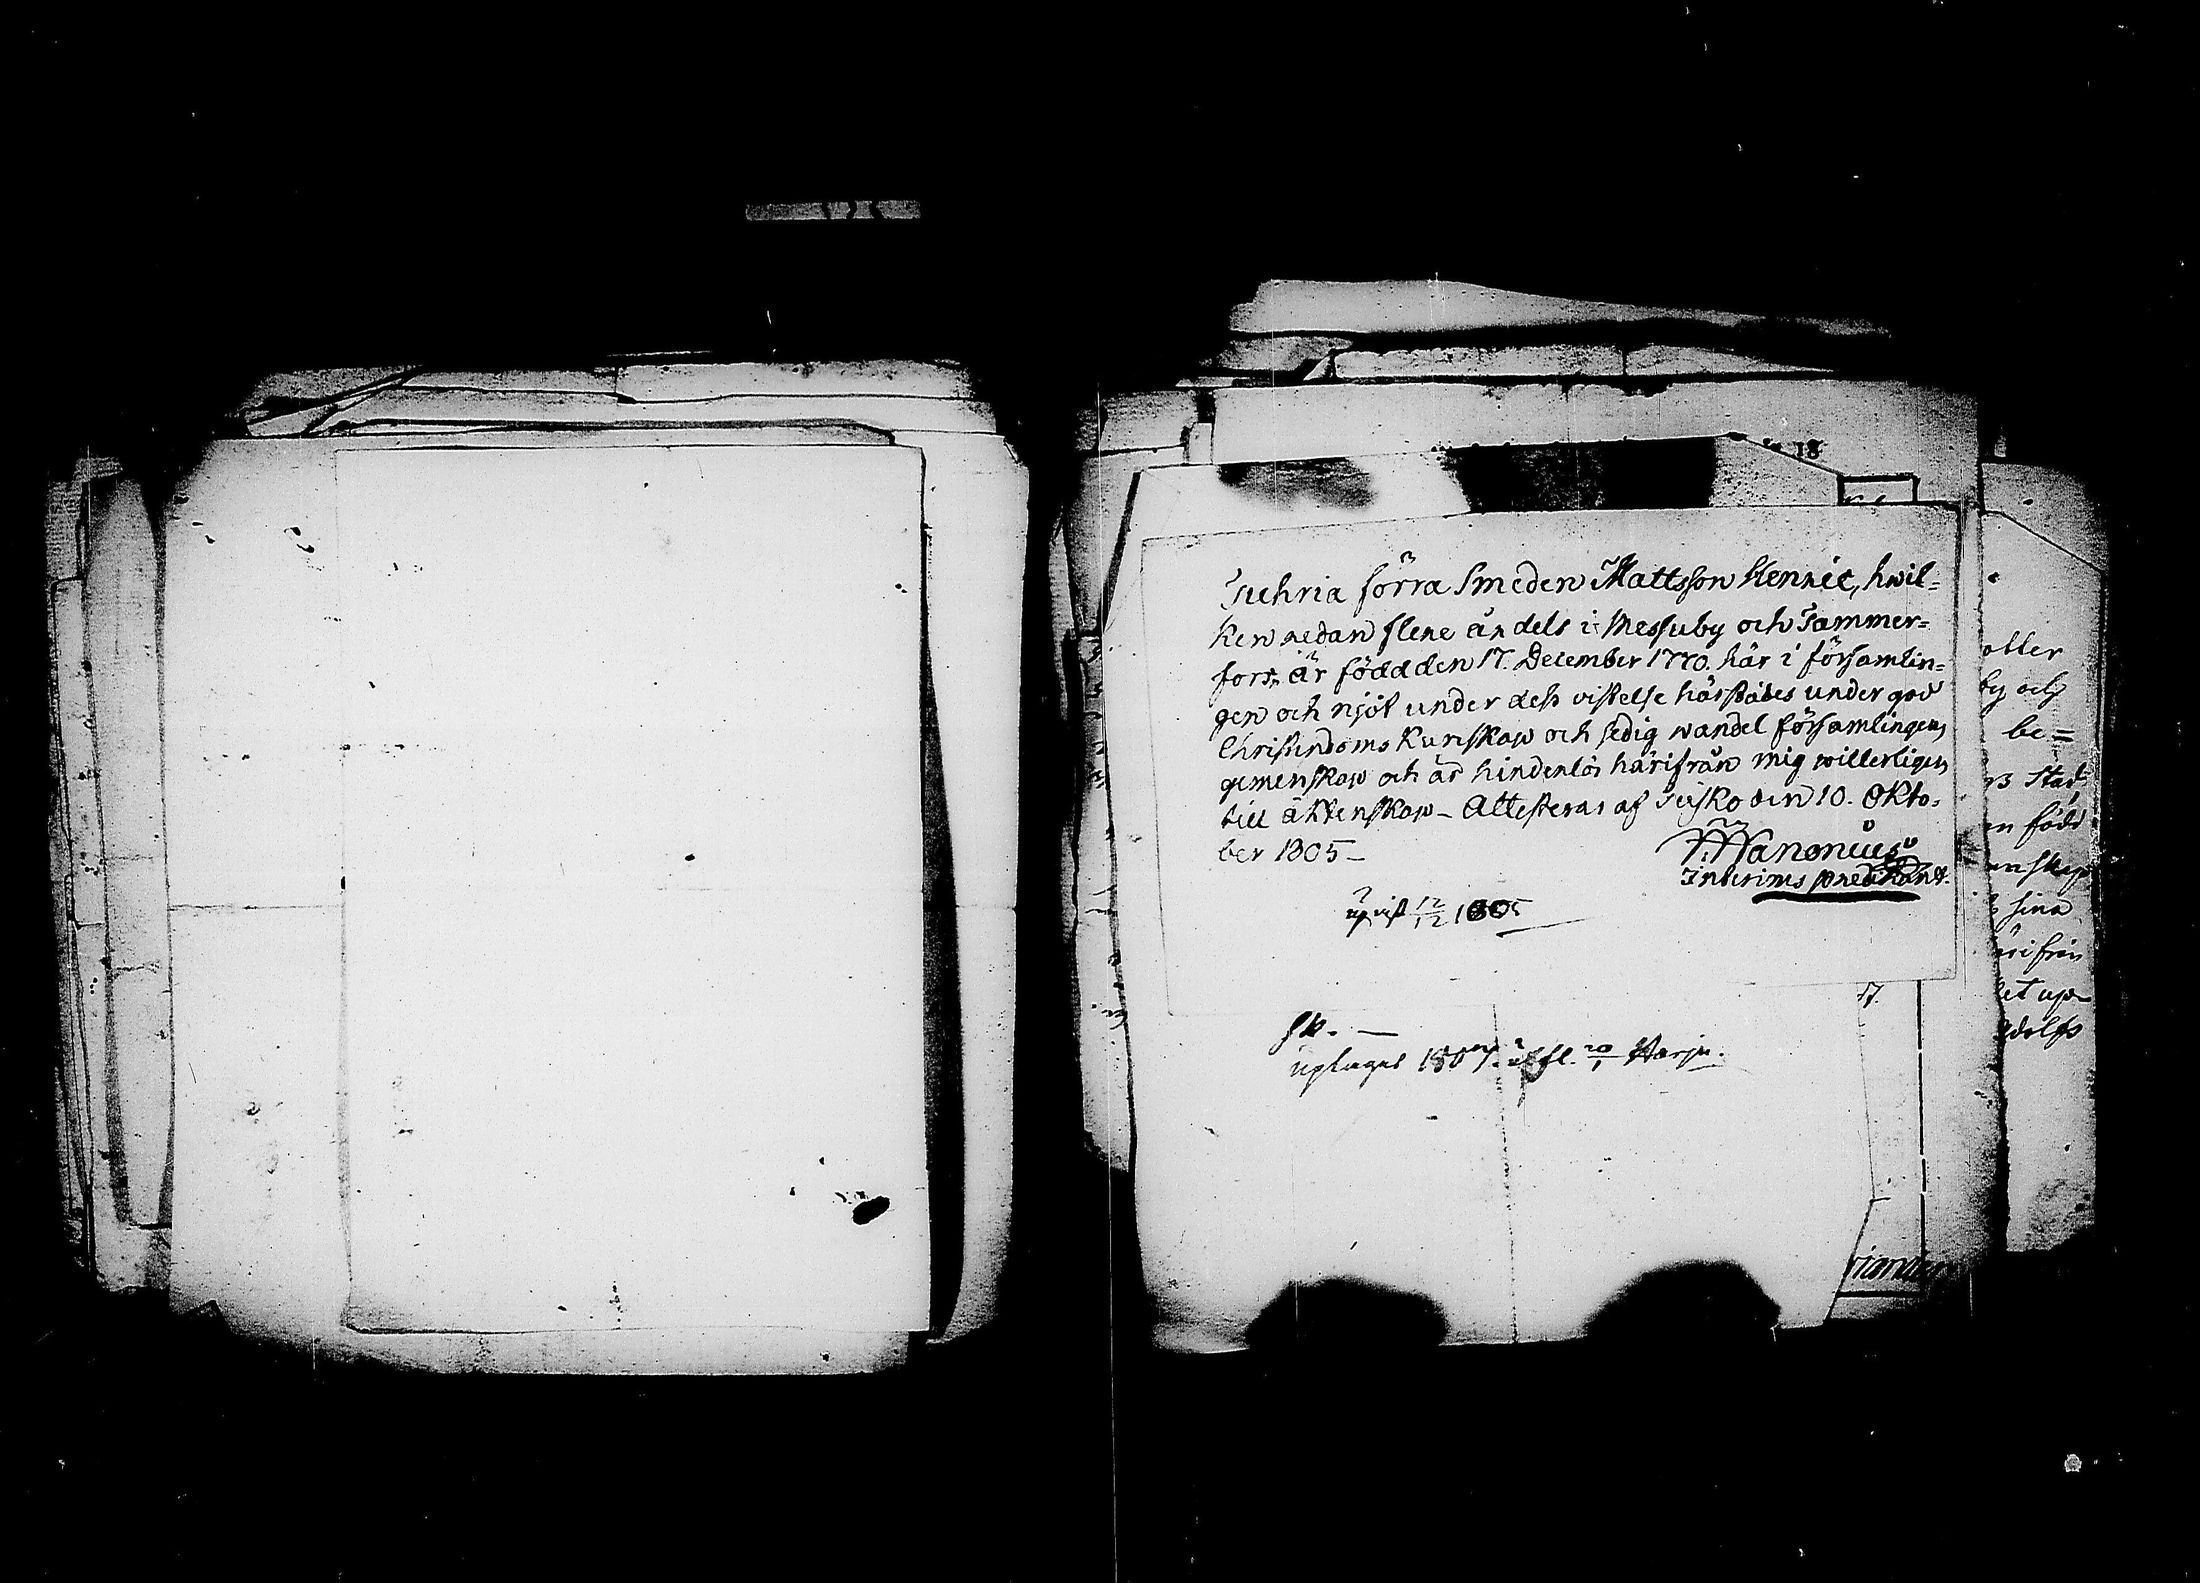 18
Juhria förra Smeden Mattsson Henric, hwil=
ken nedan flere år dels i Messuby och Tammer=
fors, är född den 17. December 1770. här i församlin=
gen och njöt under dess vistelse härstädes under god
Christendoms Kunskap och sedig wandel församlingens
gemenskap och är hinderlös härifrån mig witterligen
till äktenskap – Attesteras af den 10. Okto-
ber 1805 –
Interims predikant.
upvist 12/12 1805
uptagit 1807. fl. 20/1 Harju.
oller
by och
be=
Stad
född
sina
härifrån
et up-
dolfs